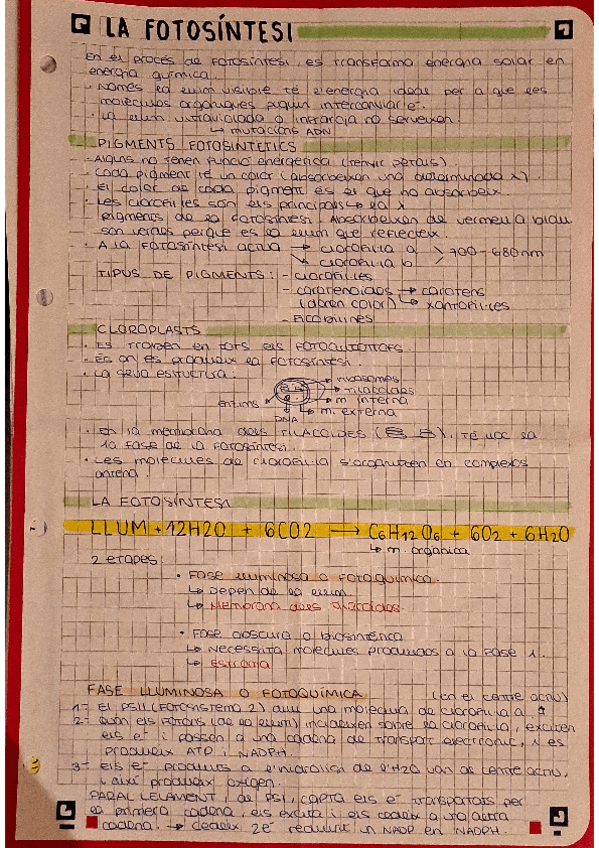 LA FOTOSÍNTESI
En el procés de FOTOSÍNTESI, es transforma energia solar en
energia química.
· Només la llum visible té l'energia ideal per a que les
molècules orgàniques puguin intercanviar e⁻.
· La llum ultraviolada o infraroja no serveixen.
↳ mutacions ADN
PIGMENTS FOTOSINTÈTICS
- Alguns no tenen funció energètica (tenyir pètals).
- Cada pigment té un color (absorbeixen una determinada λ)
· El color de cada pigment és el que no absorbeix.
· Les clorofil·les són els principals → la λ
pigments de la fotosíntesi. Absorbeixen de vermell a blau
són verdes perquè és la llum que reflecteix.
· A la FOTOSÍNTESI actua → clorofil·la a > 700-680nm
↘ clorofil·la b
TIPUS DE PIGMENTS: - clorofil·les
- carotenoides → carotens
(donen color) ↳ xantofil·les
- Ficobilines
CLOROPLASTS
· Es troben en tots els FOTOAUTÒTROFS.
· És on es produeix la FOTOSÍNTESI.
· La seva estructura:
ribosomes
tilacoides
enzims m. interna
m. externa
DNA
· En la membrana dels TILACOIDES ( ), té lloc la
1a fase de la FOTOSÍNTESI.
· Les molècules de clorofil·la s'organitzen en complexos
antena.
LA FOTOSÍNTESI
LLUM + 12H2O + 6CO2 → C6H12O6 + 6O2 + 6H2O
↳ m. orgànica
2 etapes:
· FASE lluminosa o FOTOQUÍMICA.
↳ Depèn de la llum.
↳ Membrana dels tilacoides.
· FASE obscura o biosintètica
↳ Necessita molècules produïdes a la fase 1.
↳ Estroma
FASE LLUMINOSA O FOTOQUÍMICA (en el centre actiu)
1- El PSII (FOTOSISTEMA 2) amb una molècula de clorofil·la a
2- Quan els fotons (de la llum) incideixen sobre la clorofil·la, exciten
els e⁻ i passen a una cadena de transport electrònic, i es
produeix ATP i NADPH.
3- Els e⁻ produïts a l'hidròlisi de l'H2O van al centre actiu,
i així produeix oxigen.
PARAL·LELAMENT, el PSI, capta els e⁻ transportats per
la primera cadena, els excita i els cedeix a una altra
cadena. → cedeix 2e⁻ reduint un NADP en NADPH.